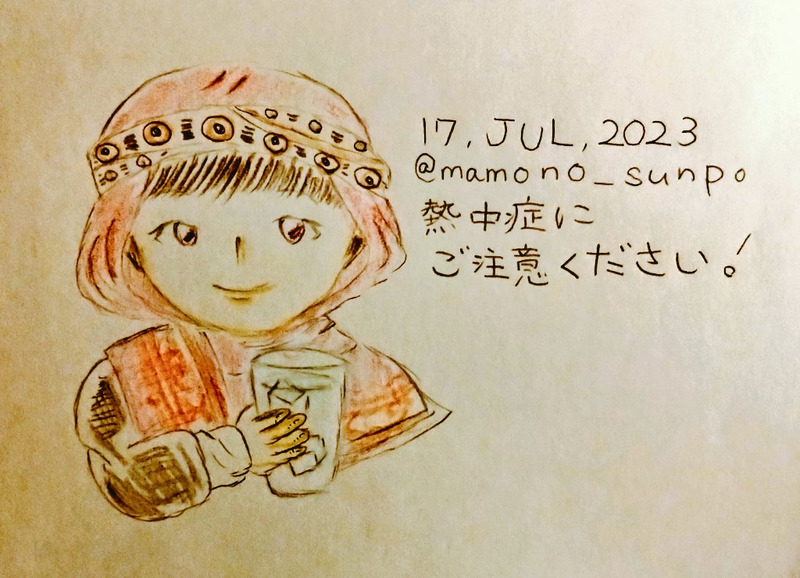 17, JUL, 2023
@mamono_sunpo
熱中症に
ご注意ください!